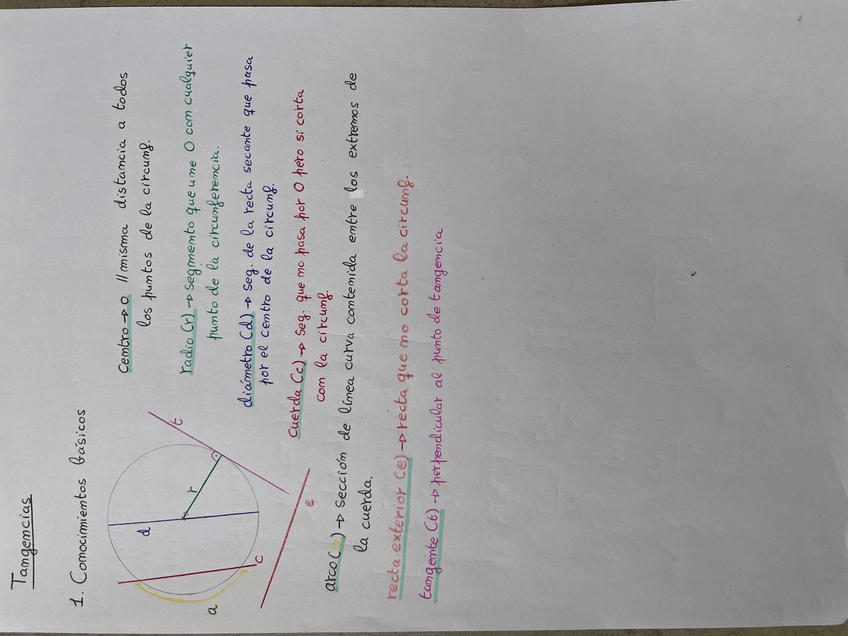 Tangencias
1. Conocimientos básicos
centro → o // misma distancia a todos
los puntos de la circunf.
radio (r) → segmento que une O con cualquier
punto de la circunferencia.
diámetro (d) → seg. de la recta secante que pasa
por el centro de la circunf.
cuerda (c) → seg. que no pasa por O pero si corta
con la circunf.
arco (a) → sección de línea curva contenida entre los extremos de
la cuerda.
recta exterior (e) → recta que no corta la circunf.
tangente (t) → perpendicular al punto de tangencia
t
r
d
c
e
a